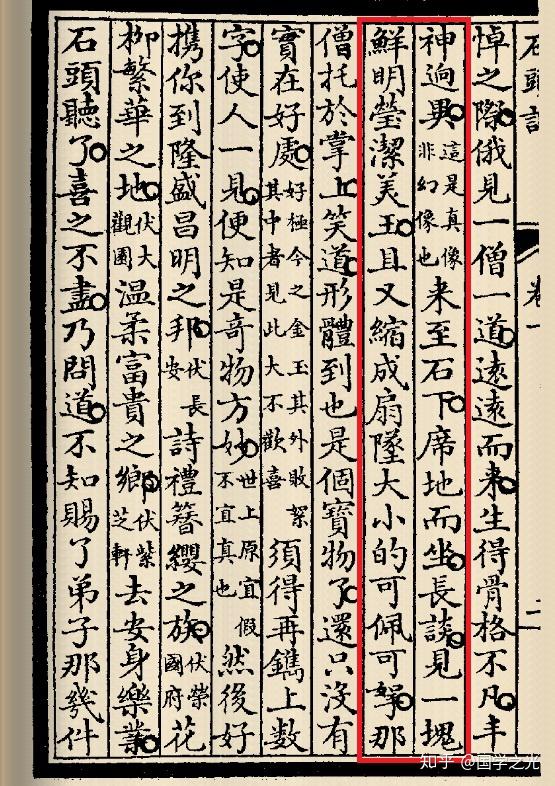 石頭記 卷一 二
悼之際俄見一僧一道遠遠而来生得骨格不凡丰
神逈異這是真像非幻像也来至石下席地而坐長談見一塊
鮮明瑩潔美玉且又縮成扇墜大小的可佩可拏那
僧托於掌上笑道形體到也是個寶物了還只沒有
實在好處好極今之金玉其外敗絮其中者見此大不歡喜須得再鐫上数
字使人一見便知是奇物方妙世上原宜假不宜真也然後好
携你到隆盛昌明之邦伏長安詩禮簪纓之族伏榮國府花
柳繁華之地伏大觀園温柔富貴之鄉伏紫芝軒去安身樂業
石頭聽了喜之不盡乃問道不知賜了弟子那幾件
知乎 @国学之光